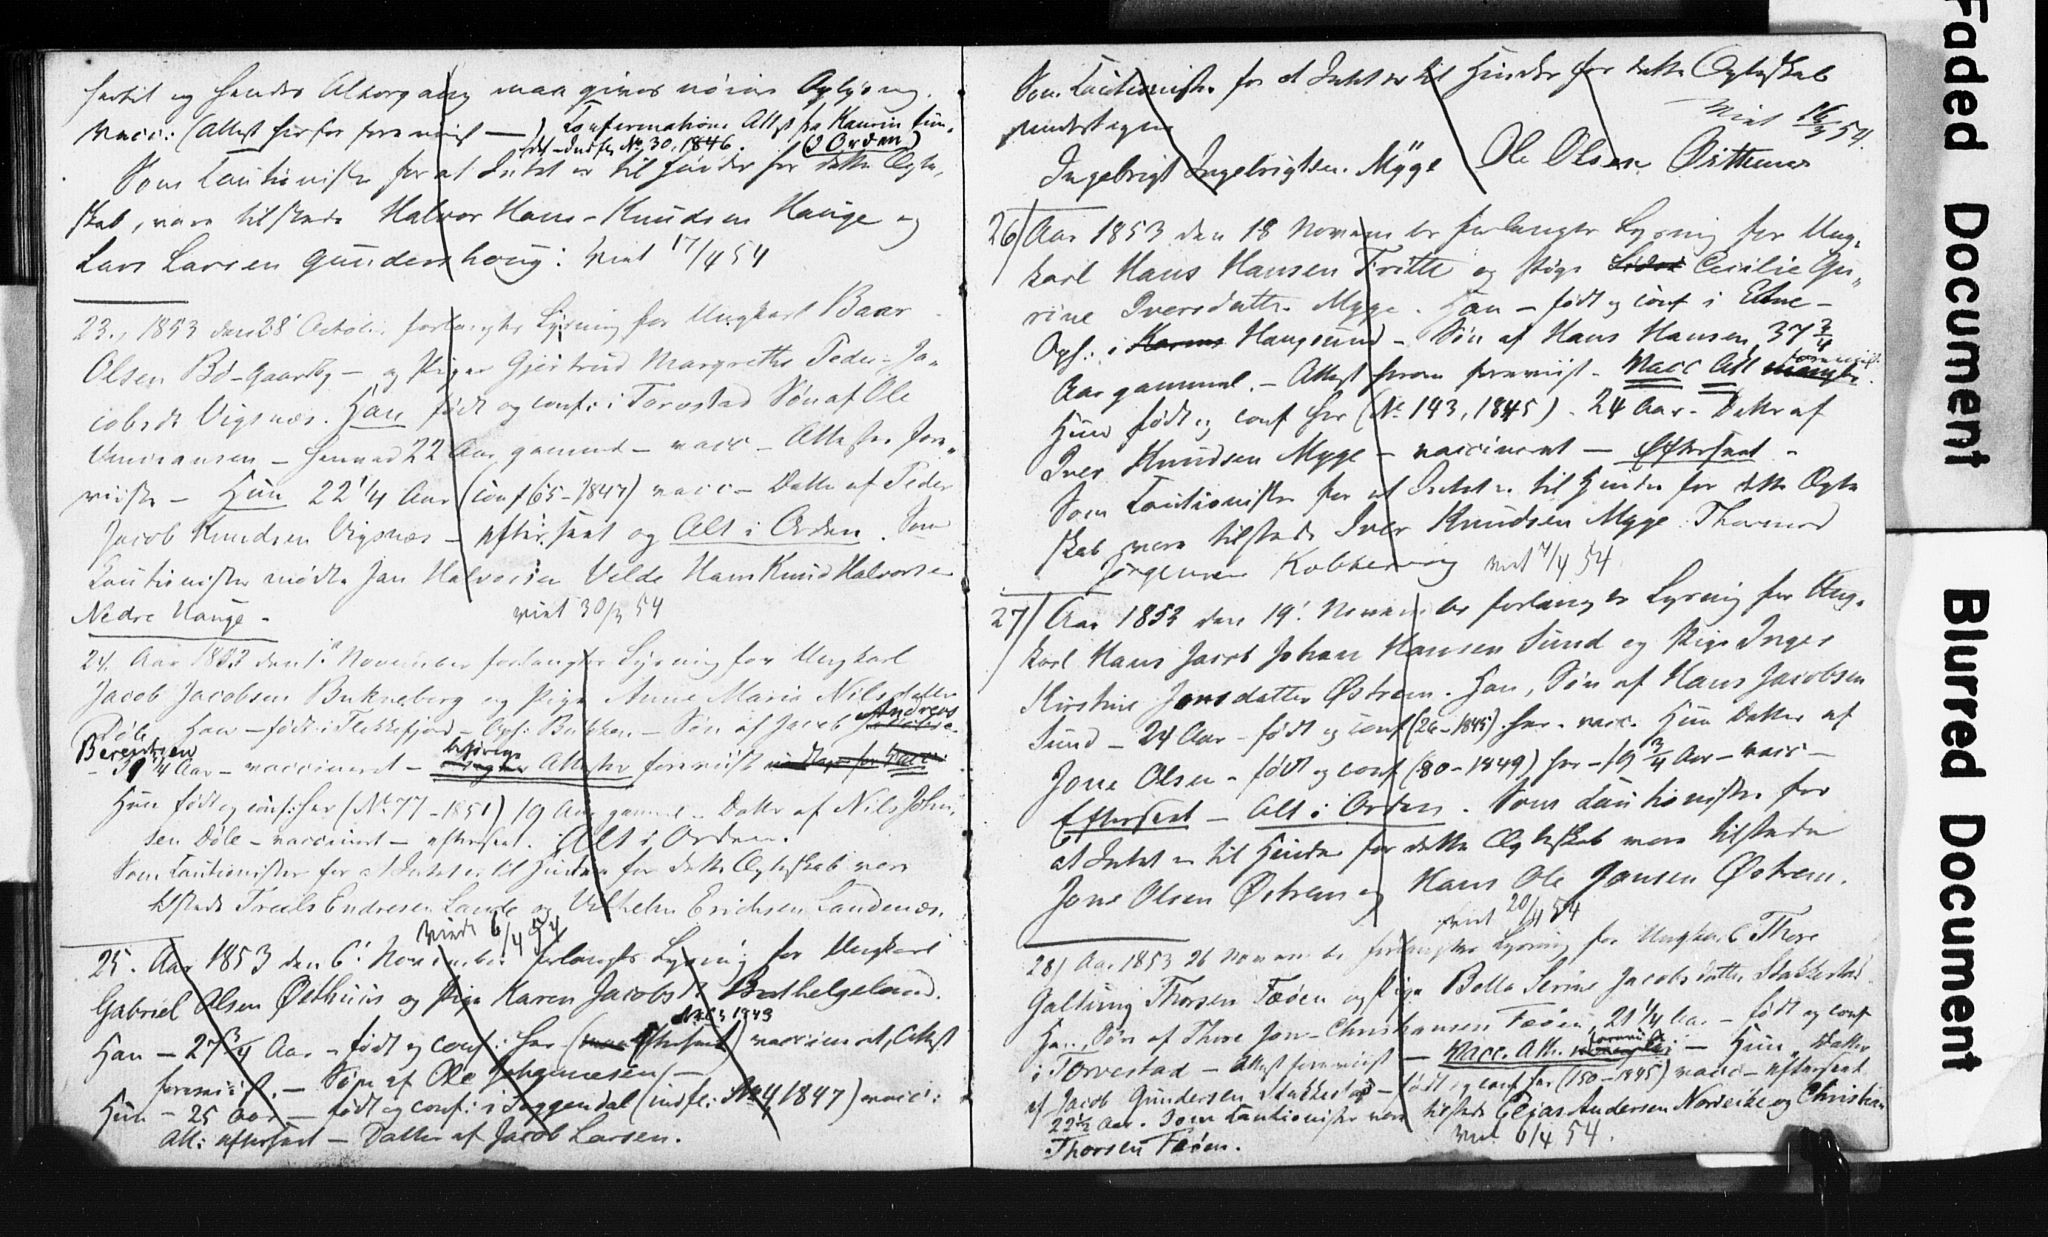 hertil og hendes Aldersgang maa gives nøiere Oplysng.
Vacc: (Attest herfor foreviist —) Confirmations Attst fra
indf No. 30, 1846. (I Orden)
Som Cautionister for at Intet er til Hinder for dette Ægte,
skab, vare tilstede Halvor Hans-Knudsen Hauge og
Lars Larsen Gundershoug: viet 17/4 54
23., 1853 den 28 Octob: forlangtes Lysning for Ungkarl Baar
Olsen Bø-Gaard — og Pigen Gjertrud Margrethe Peder-Ja-
cobsdt Vigsnæs. Han født og conf: i Torvestad Søn af Ole
— henved 22 Aar gammel — vacc — Attester fore,,
viiste — Hun 22 1/4 Aar (Conf 65-1847) vacc — Datter af Peder
Jacob Knudsen Vigsnæs — efterseet og Alt i Orden. Som
Cautionister mødte Jan Halvorsen Velde Hans Knud Halvorsen
Nedre Hauge - viet 30/3 54
24. Aar 1853 den 1. November forlangtes Lysning for Ungkarl
Jacob Jacobsen Bukneberg og Pige Anne Maria Nilsdatter
Døle Han — født i Flekkefjord — Oph: Bukken — Søn af Jacob Andreas
Berentsen
1/4 Aar — vaccineret — behørige Attester foreviist
Hun født og conf: her (No. 77 - 1851) 19 Aar gammel - Datter af Nils John,
sen Døle — vaccineret — eftersеet. Alt i Orden.
Som Cautionister for at Intet er til Hinder for dette Ægteskab vare
tilstede Troels Endresen Lande og Vilhelm Erichsen Sandenæs.
Viede 6/4 54
25. Aar 1853 den 6. November forlangtes Lysning for Ungkarl
Gabriel Olsen Østhuus og Pige Karen Jacobsdt. Bothelgeland.
Han — 27 3/4 Aar — født og conf: her (eftersеet) vaccineret, Attest
foreviist. — Søn af Ole Johannesen —
Hun - 25 Aar — født og conf: i Soggendal (indfl: No 4, 1847) vacc:
Att: eftersеet — Datter af Jacob Larsen.
Som Cautionister for at Intet er til Hinder for dette Ægteskab
Viet 16/3 54.
undertegnes
Ingebrigt Ingebrigtsen Myge Ole Olsen Østhuus
26) Aar 1853 den 18 November forlangtes Lysning for Ung,
karl Hans Hansen Fritte og Pige Cecilie Gu,,
rine Iversdatter Myge. Han — født og conf i Etne —
Oph: i Karms Haugsund — Søn af Hans Hansen, 37 3/4
Aar gammel. — Attest herom foreviist. Vacc Att foreviist.
Hun født og conf her (No. 143, 1845). 24 Aar - Datter af
Iver Knudsen Myge — vaccineret — Eftersеet -
Som Cautionister for at Intet er til Hinder for dette Ægte
skab vare tilstede Iver Knudsen Myge. Thormod
Jørgensen Kobbervig viet 7/4 54
27) Aar 1853 den 19. November forlanges Lysning for Ung,
karl Hans Jacob Johan Hansen Sund og Pige Inger
Kirstine Jonsdatter Østrem. Han, Søn af Hans Jacobsen
Sund — 24 Aar - født og conf (26-1845) her - vacc. Hun Datter af
Jone Olsen - født og conf (80-1849) her - 19 3/4 Aar — vacc —
Eftersеet — Alt i Orden. Som Cautionister for
at Intet er til Hinder for dette Ægteskab vare tilstede
Jone Olsen Østrem og Hans Ole Jonsen Østrem.
viet 20/4 54
28) Aar 1853 26 November forlangtes Lysning for Ungkarl Thore
Galtung Thorsen Fæøen og Pige Bolla Serine Jacobsdatter Stakkestad
Han, Søn af Thore Jon-Christiansen Fæøen, 21 1/4 Aar — født og conf
i Torvestad — Attest foreviist — Vacc. Att. foreviist — Hun, Datter
af Jacob Gundersen Stakkestad — født og conf her (150-1845) vacc — eftersеet
22 1/2 Aar. Som Cautionister vare tilstede Elias Andersen Norheike og Christian
Thorsen Fæøen. viet 6/4 54.
Faded Document
Blurred Document